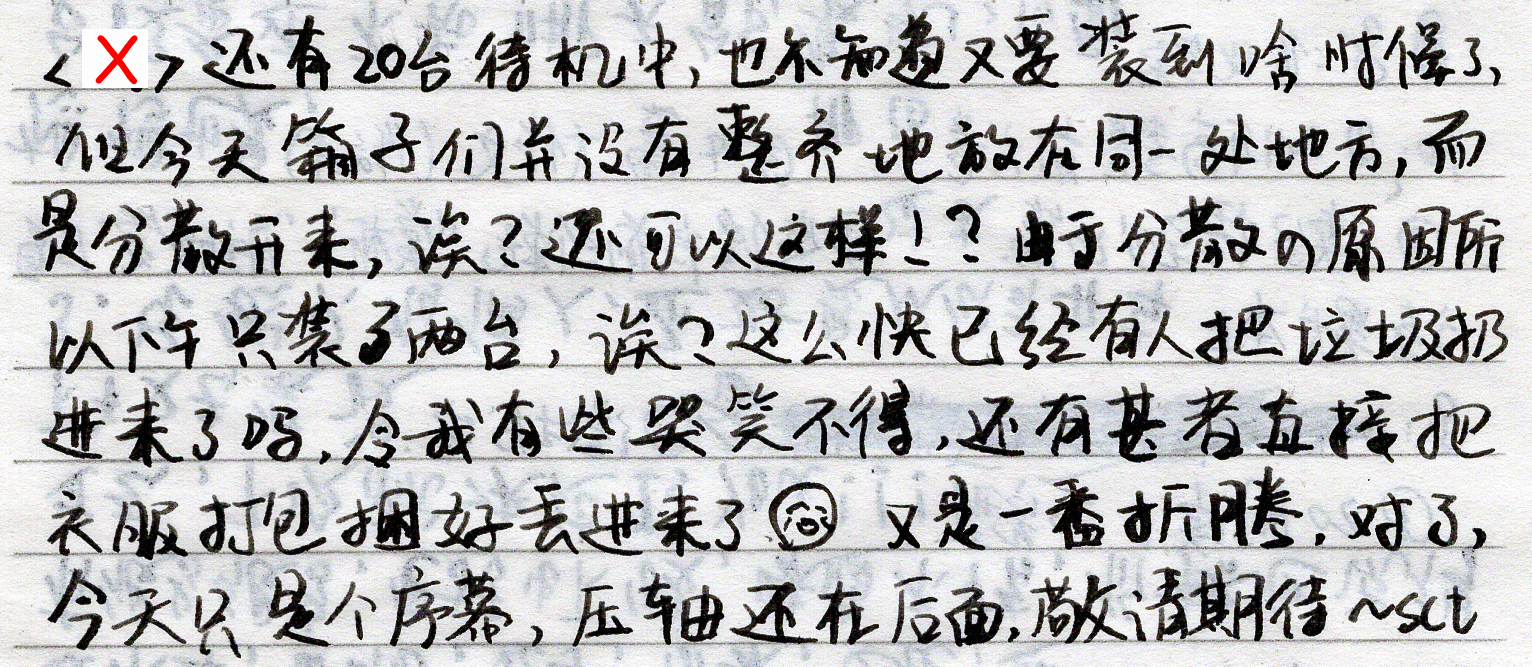 <X>还有20台待机中,也不知道又要装到啥时候了,
但今天箱子们并没有整齐地放在同一处地方,而
是分散开来,诶?还可以这样!?由于分散の原因所
以下午只装了两台,诶?这么快已经有人把垃圾扔
进来了吗,令我有些哭笑不得,还有甚者直接把
衣服打包捆好丢进来了 又是一番折腾.对了,
今天只是个序幕,压轴还在后面,敬请期待~sct